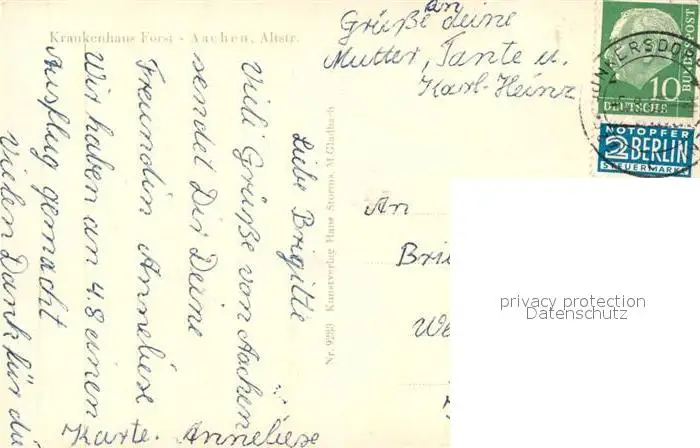 Krankenhaus Forst - Aachen, Altstr.
Liebe Brigitte
Viele Grüße von Aachen
sendet Dir Deine
Freundin Anneliese
Wir haben an 4.8 einen
Ausflug gemacht
Vielen Dank für die
Karte. Anneliese
an
Grüße deine
Mutter, Tante u.
Karl-Heinz
Nr. 9283 Kunstverlag Hans Storms, M.Gladbach
An
Bri
We
JUNKERSDORF
10
DEUTSCHE
BUNDESPOST
NOTOPFER
2 BERLIN
STEUERMARKE
privacy protection
Datenschutz